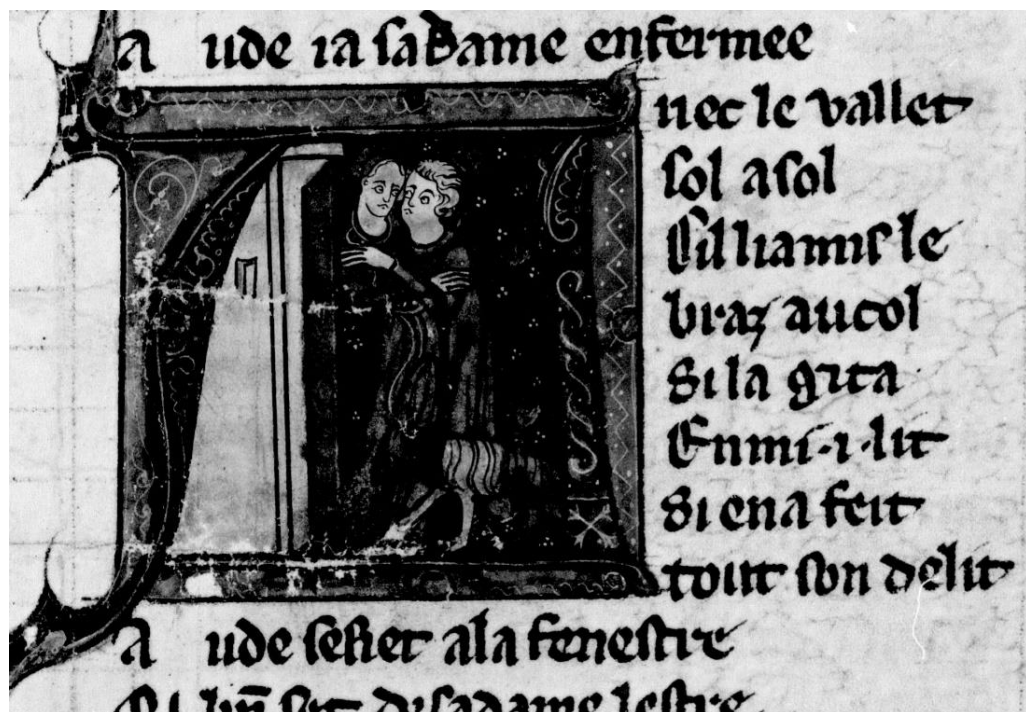 A ude ia sa dame enfermee
nec le vallet
sol a sol
Gilliamis le
braz au col
Si la gita
Enmi .i. lit
Si en a feit
tout son delit
A ude se siet a la fenestre
dame